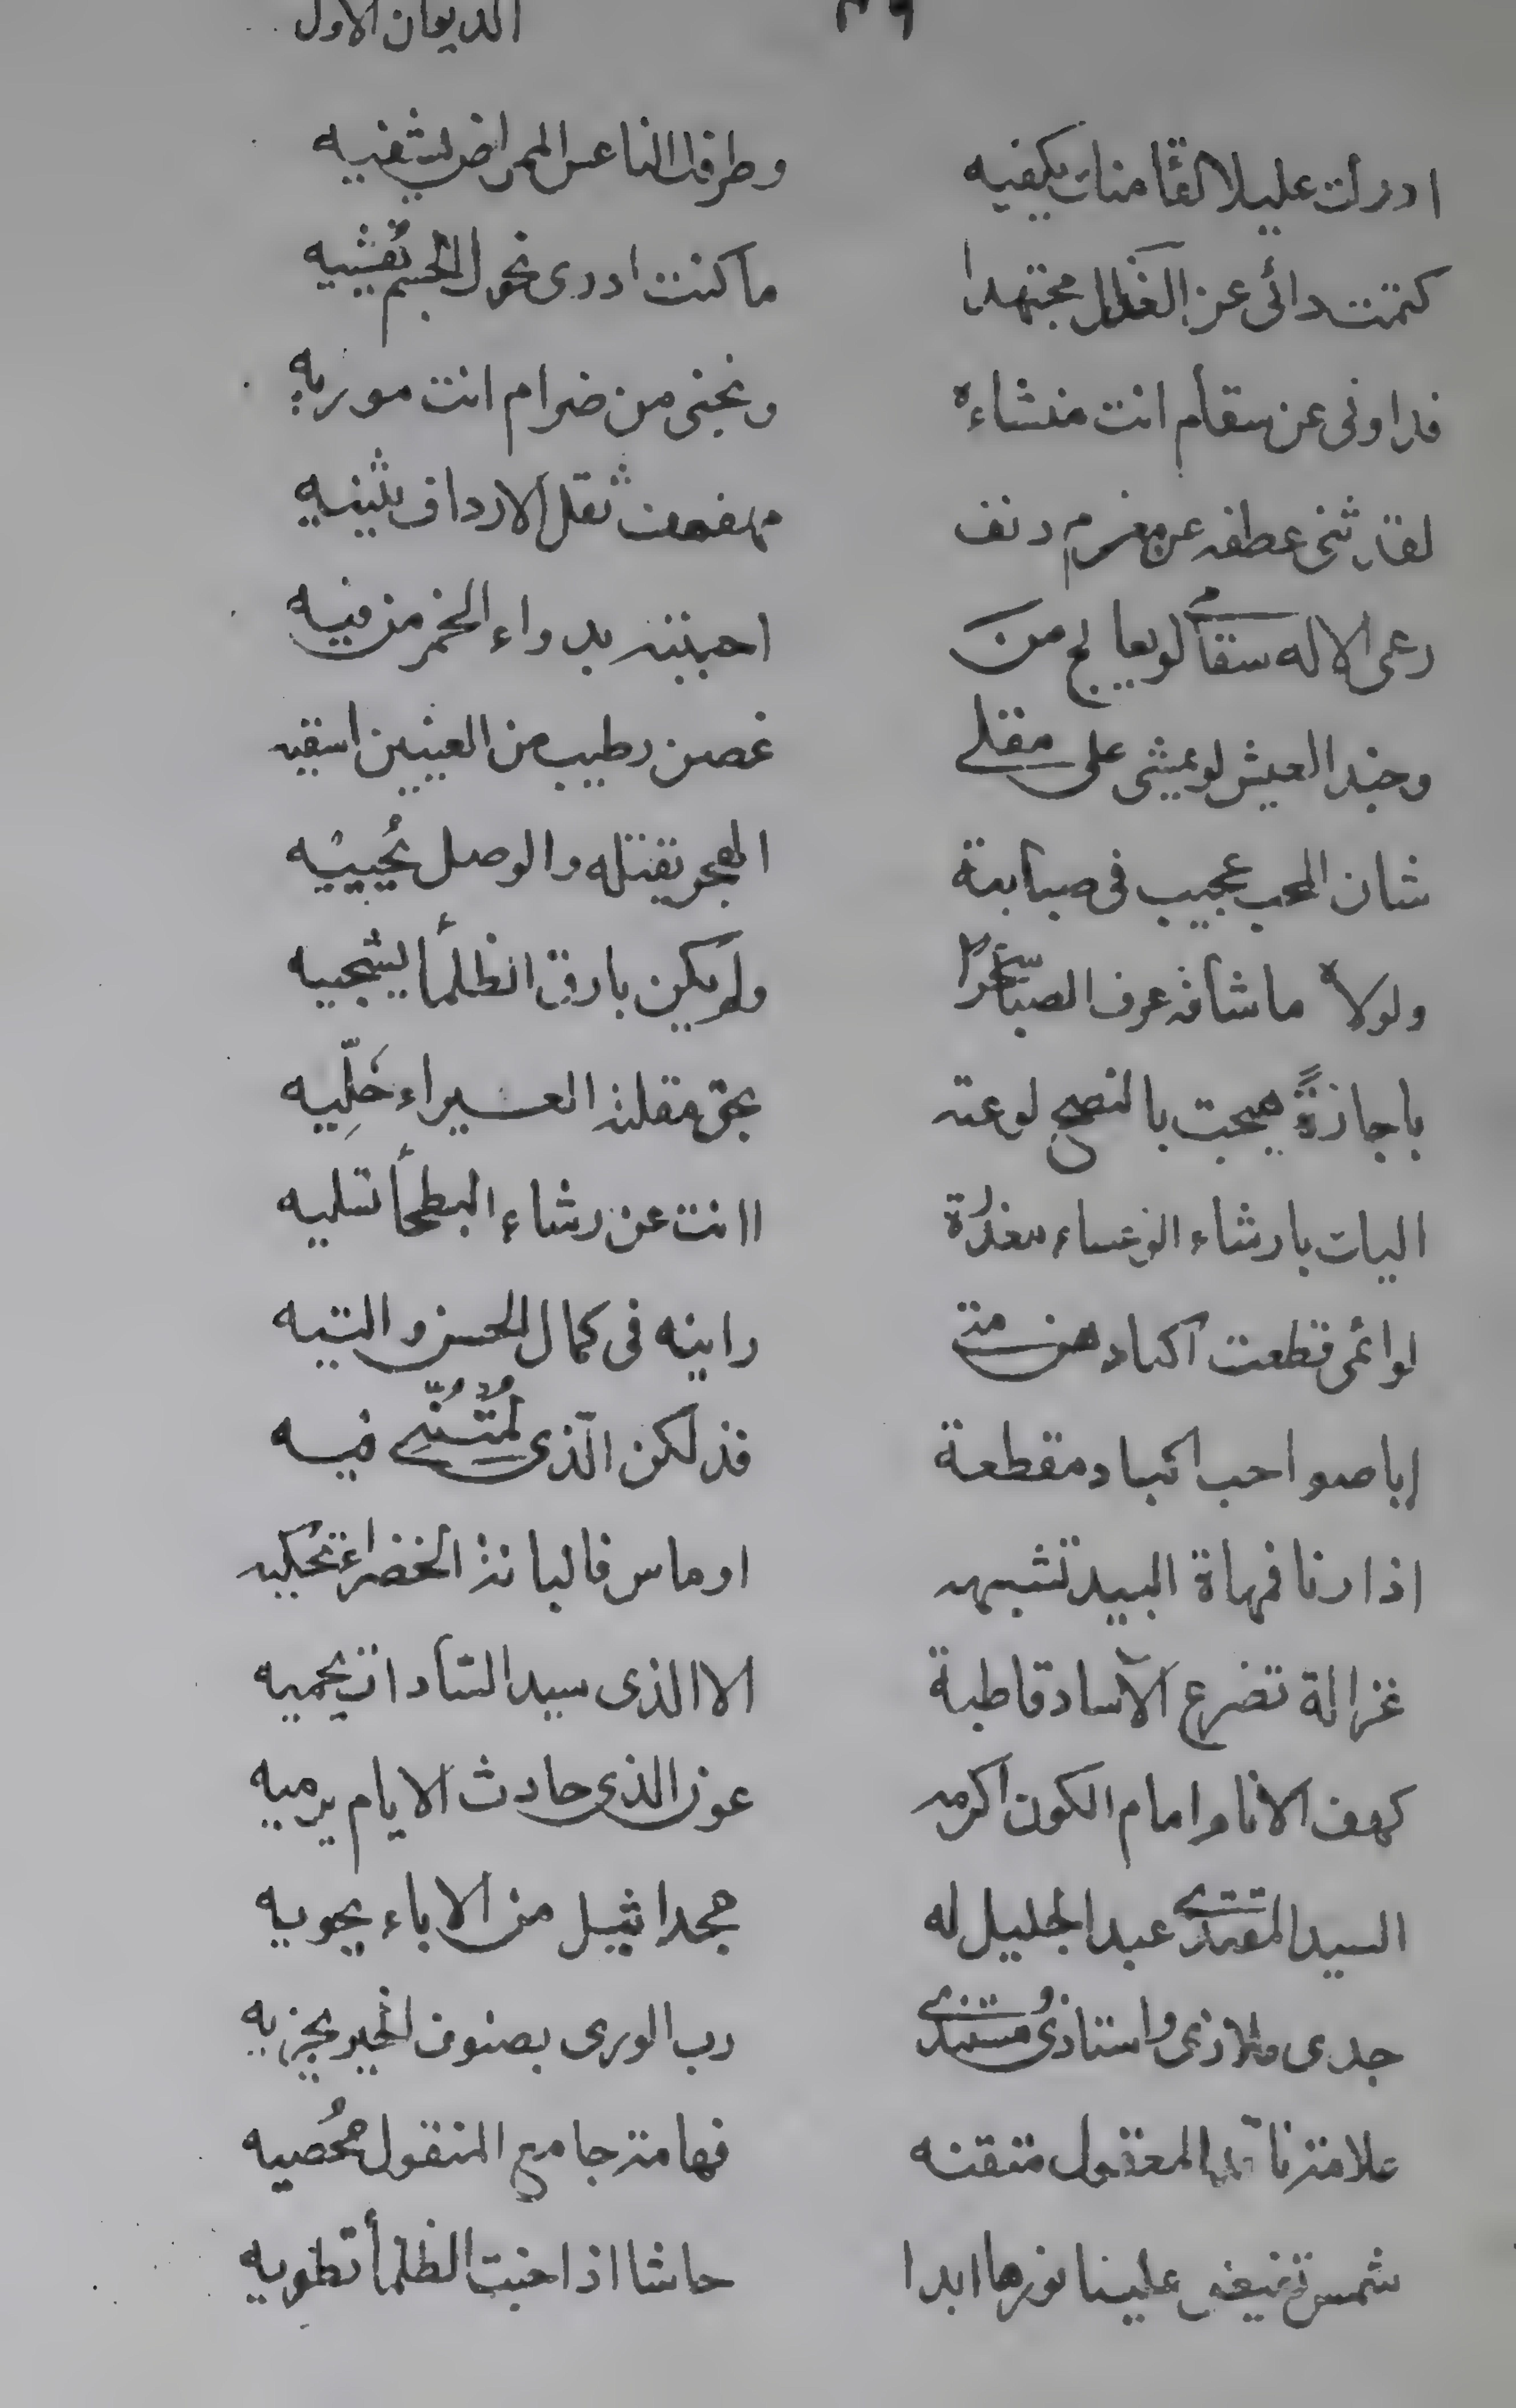 ٣٩ الديوان الاول
ادرك عليلا لقا منك يكفيه وطرفك الناعس الممراض يشفيه
كتمت دائى عن العذال مجتهدا ما كنت ادرى نحول الجسم تفشيه
فداونى عن سقام انت منشاءه ونجنى من ضرام انت موريه
لقد ثنى عطفه عن مغرم دنف مهفهف ثقل الارداف يثنيه
رعى الاله سقأم لو يعالج من احببته بدواء الخمر من فيه
وحبذا العيش لو يمشى على مقلى غصن رطيب من العينين اسقيه
شان المحب عجيب فى صبابته الهجر يقتله والوصل يُحييه
ولولاه ما شاقه عرف الصبا سَحَرًا ولم يكن بارق الظلمأ يشجيه
يا جازةً هيجت بالنصح لوعته بحق مقلته العبراء خَلِّيه
اليك يا رشاء الوعساء معذرة اانت عن رشاء البطحأ تسليه
لوائمى قطعت اكبادهن متى راينه فى كمال الحسن والتيه
ايا صواحب اكباد مقطعة فذلكن الّذى لُمْتُنَّنى فيه
اذا رنا فمهاة البيد تشبهه او ماس فالبانة الخضراء تحكيه
غزالة تضرع الآساد قاطبة الا الذى سيد السّادات يحميه
كهف الانام امام الكون اكرمه عون الذى حادث الايام يرميه
السيد المقتدى عبد الجليل له مجد اثيل من الاباء يحويه
جدى ملاذى واستاذى ومستندى رب الورى بصنوف الخير يجزيه
علامة ناقد المعقول متقنه فهامة جامع المنقول مُحصيه
شمس تفيض علينا نورها ابدا حاشا اذا جنت الظلمأ تطويه